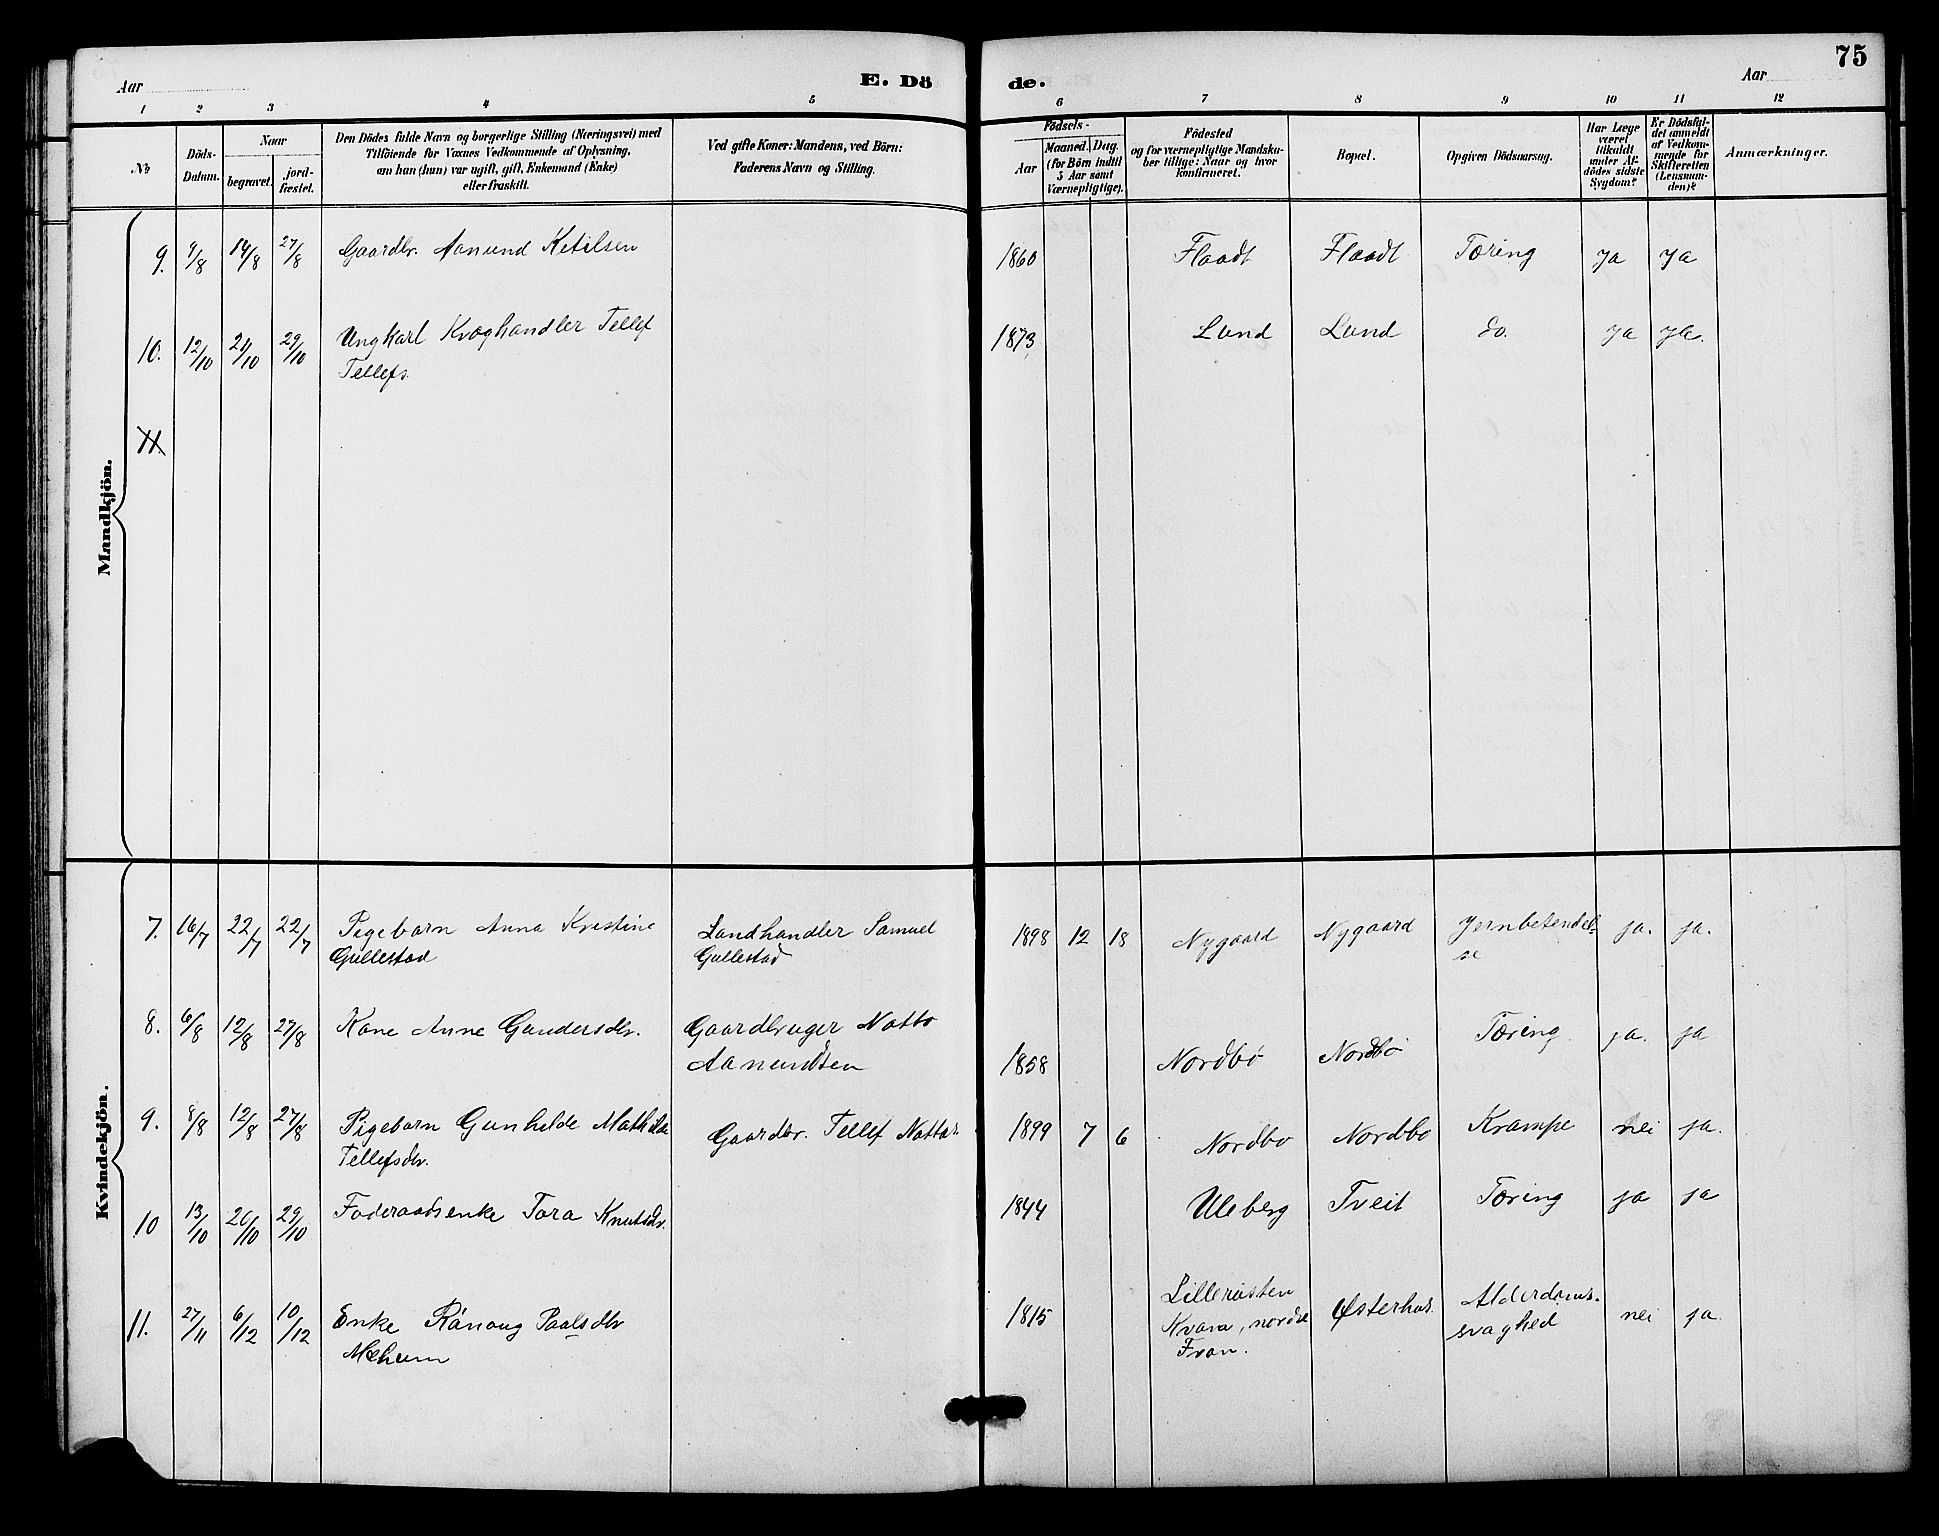 75
Aar
E. Dö
de.
Aar
1 2 3 4 5 6 7 8 9 10 11 12
No
Döds-Datum.
Naar
begravet.
jord-fæstet.
Den Dödes fulde Navn og borgerlige Stilling (Næringsvei) med
Tilföiende for Voxnes Vedkommende af Oplysning,
om han (hun) var ugift, gift, Enkemand (Enke)
eller fraskilt.
Ved gifte Koner: Mandens, ved Börn:
Faderens Navn og Stilling.
Födsels-
Aar
Maaned. Dag.
(for Börn indtil
5 Aar samt
Værnepligtige).
Födested
og for værnepligtige Mandska-
ber tillige: Naar og hvor
konfirmeret.
Bopæl.
Opgiven Dödsaarsag.
Har Læge
været
tilkaldt
under Af-
dödes sidste
Sygdom?
Er Dödsfal-
det anmeldt
af Vedkom-
mende for
Skifteretten
(Lensman-
den)?
Anmærkninger.
Mandkjön.
9. 9/8 14/8 27/8 Gaardbr. Aanund Ketilsen 1860 Flaadt Flaadt Tæring ja ja
10. 12/10 21/10 29/10 Ungkarl Kvæghandler Tellef 1873 Lund Lund do. ja ja.
Tellefs.
11.
Kvindekjön.
7. 16/7 22/7 22/7 Pigebarn Anna Kristine Landhandler Samuel 1898 12 18 Nygaard Nygaard Hjernbetendel- ja. ja.
Gullestad Gullestad se
8. 6/8 12/8 27/8 Kone Anne Gundersdtr. Gaardbruger Notto Tæring. ja. ja
Aanundsen 1858 Nordbö Nordbö
9. 8/8 12/8 27/8 Pigebarn Gunhilde Mathilde Gaardbr. Tellef Nottos. 1899 7 6 Nordbo Nordbo Krampe nei ja.
Tellefsdtr.
10 13/10 20/10 29/10 Föderaadsenke Tora Knutsdtr. 1844 Uleberg Tveit Tæring ja ja
11. 27/11 6/12 10/12 Enke Rånoug Paalsdtr 1815 Lillerusten Østerhus. Alderdoms- nei ja.
Mæhum Kvara, nordre svaghed
Fron.